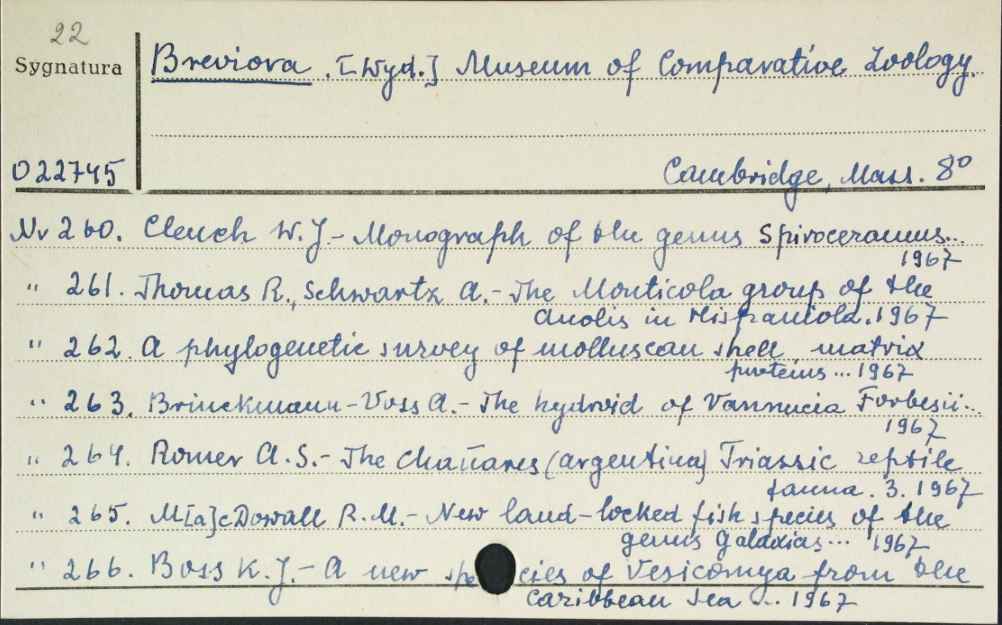 22
Sygnatura
Breviora. [Wyd.] Museum of Comparative Zoology.
022745
Cambridge, Mass. 8°
Nr 260. Clench W.J. - Monograph of the genus Spiroceramus...
1967
" 261. Thomas R., Schwartz A. - The Monticola group of the
Anolis in Hispaniola. 1967
" 262. A phylogenetic survey of molluscan shell matrix
proteins ... 1967
" 263. Brinckmann-Voss A. - The hydroid of Vannucia Forbesii...
1967
" 264. Romer A.S. - The Chañares (Argentina) Triassic reptile
fauna. 3. 1967
" 265. M[a]cDowall R.M. - New land-locked fish species of the
genus Galaxias ... 1967
" 266. Boss K.J. - A new species of Vesicomya from the
Caribbean Sea ... 1967